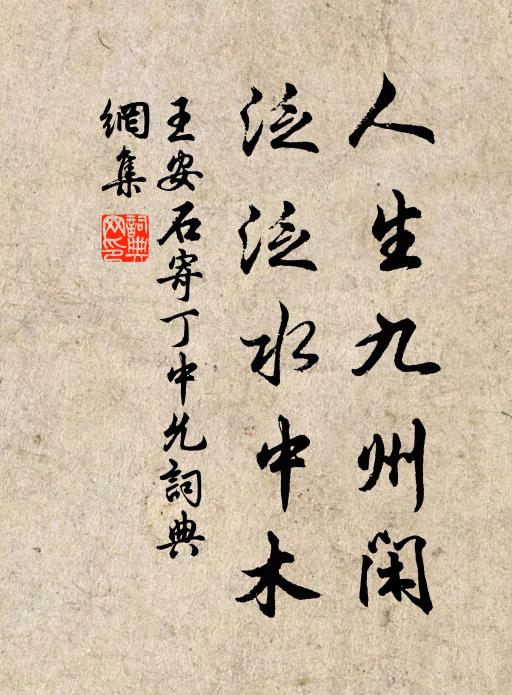 人生九州閑
泛泛水中木
王安石寄丁中允詞典
網集
詞典網印